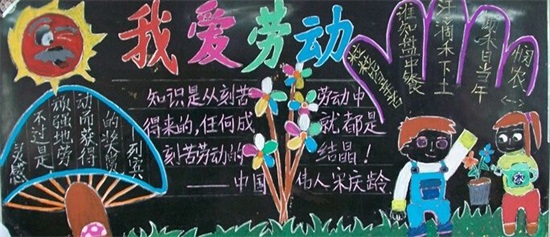 我爱劳动
知识是从刻苦劳动中
得来的,任何成就都是
刻苦劳动的结晶!
——中国伟人宋庆龄
灵感
不过是
顽强地劳
动而获得
的奖赏
列宾
悯农(一)
禾日当午
汗滴禾下土
谁知盘中餐